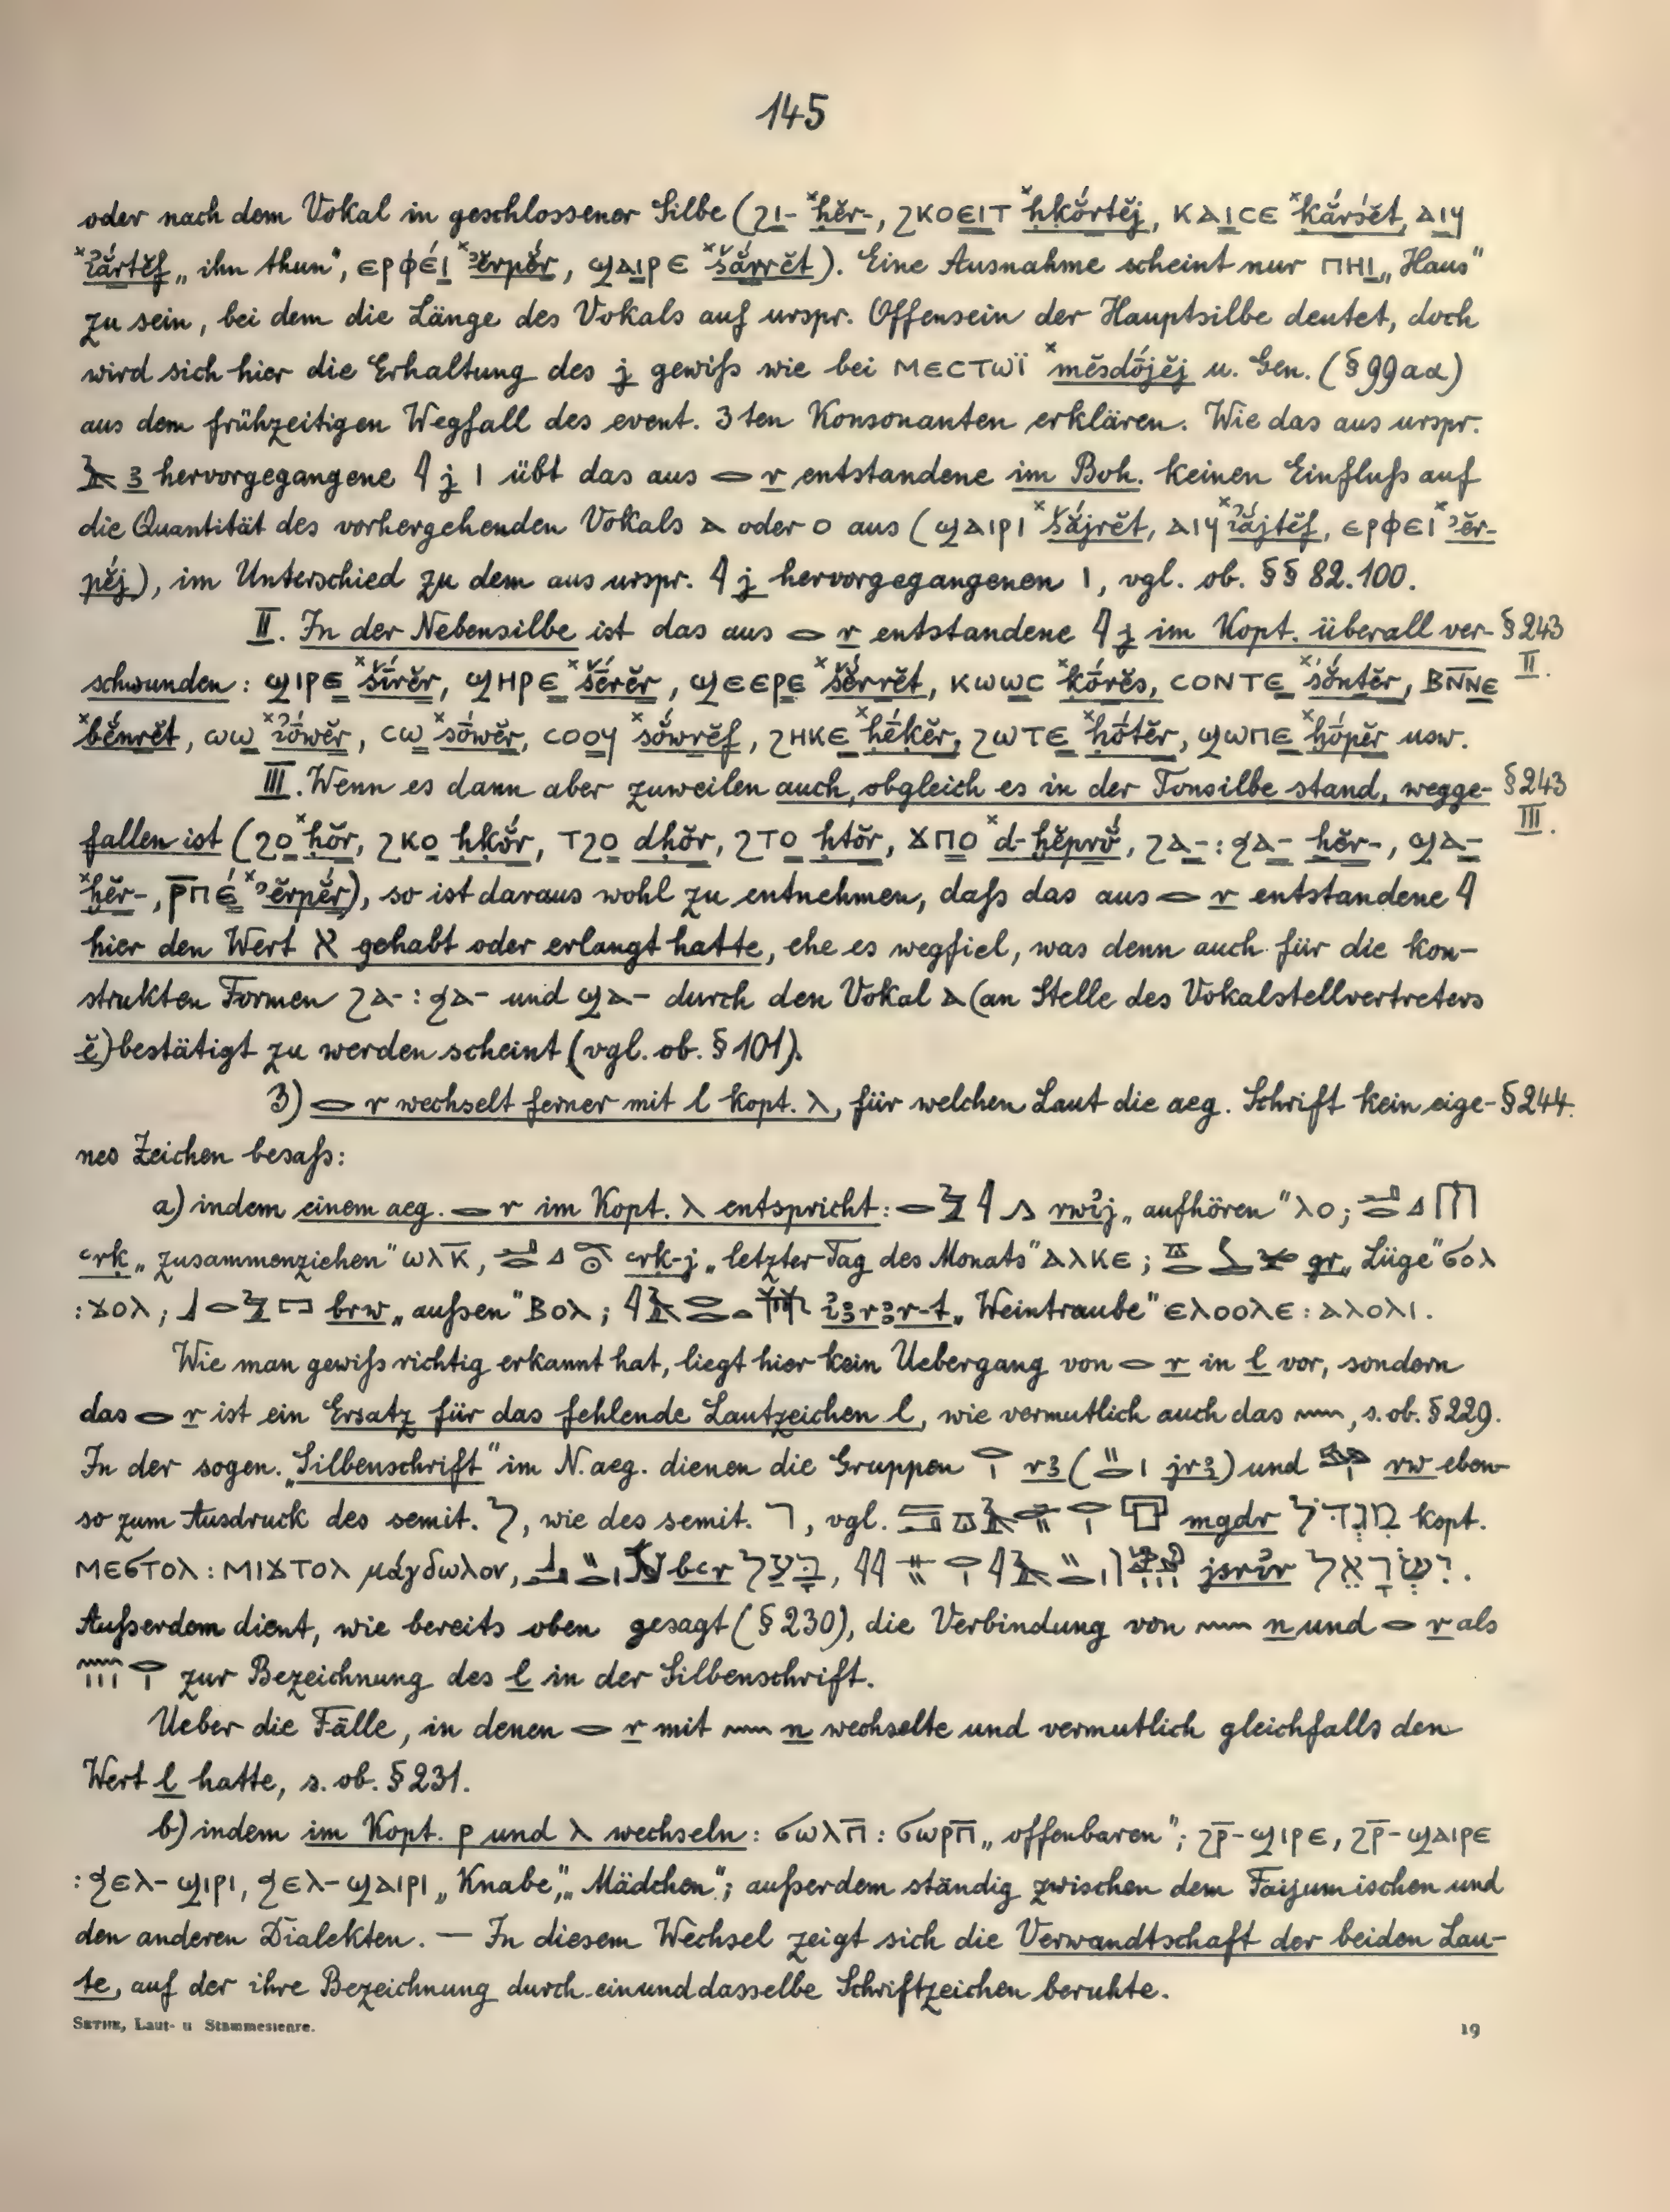 145
oder nach dem Vokal in geschlossener Silbe (ϩⲓ- ˣḥĕr-, ϩⲕⲟⲉⲓⲧ ˣḥḳŏ́rtĕj, ⲕⲁⲓⲥⲉ ˣḳắrśĕt, ⲁⲓϥ
ˣꞽắrtĕf „ihn thun“, ⲉⲣⲫⲉ́ⲓ ˣʾĕrpĕ́r, ϣⲁⲓⲣⲉ ˣšắrrĕt). Eine Ausnahme scheint nur ⲡⲏⲓ „Haus“
zu sein, bei dem die Länge des Vokals auf urspr. Offensein der Hauptsilbe deutet, doch
wird sich hier die Erhaltung des j gewiß wie bei ⲙⲉⲥⲧⲱⲓ̈ ˣmĕsdṓjĕj u. Gen. (§ 99aα)
aus dem frühzeitigen Wegfall des event. 3ten Konsonanten erklären. Wie das aus urspr.
𓄿 ꜣ hervorgegangene 𓇋 j ⲓ übt das aus 𓂋 r entstandene im Boh. keinen Einfluß auf
die Quantität des vorhergehenden Vokals ⲁ oder ⲟ aus (ϣⲁⲓⲣⲓ ˣšắjrĕt, ⲁⲓϥ ˣꞽắjtĕf, ⲉⲣⲫⲉⲓ ˣʾĕr-
pĕ́j), im Unterschied zu dem aus urspr. 𓇋 j hervorgegangenen ⲓ, vgl. ob. §§ 82. 100.
II. In der Nebensilbe ist das aus 𓂋 r entstandene 𓇋 j im Kopt. überall ver- § 243 II.
schwunden: ϣⲓⲣⲉ ˣšī́rĕr, ϣⲏⲣⲉ ˣšḗrĕr, ϣⲉⲉⲣⲉ ˣšĕ́rrĕt, ⲕⲱⲱⲥ ˣḳṓrĕs, ⲥⲟⲛⲧⲉ ˣśŏ́ntĕr, ⲃⲛ̅ⲛⲉ
ˣbĕ́nrĕt, ⲱⲱ ˣꞽṓwĕr, ⲥⲱ ˣsṓwĕr, ⲥⲟⲟϥ ˣsŏ́wrĕf, ϩⲏⲕⲉ ˣḥḗḳĕr, ϩⲱⲧⲉ ˣḥṓtĕr, ϣⲱⲡⲉ ˣḫṓpĕr usw.
III. Wenn es dann aber zuweilen auch, obgleich es in der Tonsilbe stand, wegge- § 243 III.
fallen ist (ϩⲟ ˣḥŏr, ϩⲕⲟ ḥḳŏ́r, ⲧϩⲟ dḥŏr, ϩⲧⲟ ḥtŏr, ϫⲡⲟ ˣd-ḫĕprŏ́, ϩⲁ-: ϧⲁ- ḫĕr-, ϣⲁ-
ˣḫĕr-, ⲣ̅ⲡⲉ́ ˣʾĕrpĕ́r), so ist daraus wohl zu entnehmen, daß das aus 𓂋 r entstandene 𓇋
hier den Wert א gehabt oder erlangt hatte, ehe es wegfiel, was denn auch für die kon-
strukten Formen ϩⲁ-: ϧⲁ- und ϣⲁ- durch den Vokal ⲁ (an Stelle des Vokalstellvertreters
ĕ) bestätigt zu werden scheint (vgl. ob. § 101).
3) 𓂋 r wechselt ferner mit l kopt. ⲗ, für welchen Laut die aeg. Schrift kein eige- § 244.
nes Zeichen besaß:
a) indem einem aeg. 𓂋 r im Kopt. ⲗ entspricht: rwꞽj „aufhören“ ⲗⲟ;
ꜥrḳ „zusammenziehen“ ⲱⲗⲕ̅, ꜥrḳ-j „letzter Tag des Monats“ ⲁⲗⲕⲉ; gr „Lüge“ ϭⲟⲗ
: ϫⲟⲗ; brw „außen“ ⲃⲟⲗ; ꞽꜣrꜣr-t „Weintraube“ ⲉⲗⲟⲟⲗⲉ : ⲁⲗⲟⲗⲓ.
Wie man gewiß richtig erkannt hat, liegt hier kein Uebergang von 𓂋 r in l vor, sondern
das 𓂋 r ist ein Ersatz für das fehlende Lautzeichen l, wie vermutlich auch das 𓈖, s. ob. § 229.
In der sogen. „Silbenschrift“ im N.aeg. dienen die Gruppen rꜣ ( jrꜣ) und rw eben-
so zum Ausdruck des semit. ל, wie des semit. ר, vgl. mgdr מִגְדֹּל kopt.
ⲙⲉϭⲧⲟⲗ : ⲙⲓϫⲧⲟⲗ μάγδωλον, bꜥr בַּעַל, jsrꞽr יִשְׂרָאֵל.
Außerdem dient, wie bereits oben gesagt (§ 230), die Verbindung von 𓈖 n und 𓂋 r als
zur Bezeichnung des l in der Silbenschrift.
Ueber die Fälle, in denen 𓂋 r mit 𓈖 n wechselte und vermutlich gleichfalls den
Wert l hatte, s. ob. § 231.
b) indem im Kopt. ⲣ und ⲗ wechseln: ϭⲱⲗⲡ̅ : ϭⲱⲣⲡ̅ „offenbaren“; ϩⲣ̅-ϣⲓⲣⲉ, ϩⲣ̅-ϣⲁⲓⲣⲉ
: ϧⲉⲗ-ϣⲓⲣⲓ, ϧⲉⲗ-ϣⲁⲓⲣⲓ „Knabe“, „Mädchen“; außerdem ständig zwischen dem Faijumischen und
den anderen Dialekten. — In diesem Wechsel zeigt sich die Verwandtschaft der beiden Lau-
te, auf der ihre Bezeichnung durch ein und dasselbe Schriftzeichen beruhte.
Sethe, Laut- u Stammeslehre. 19